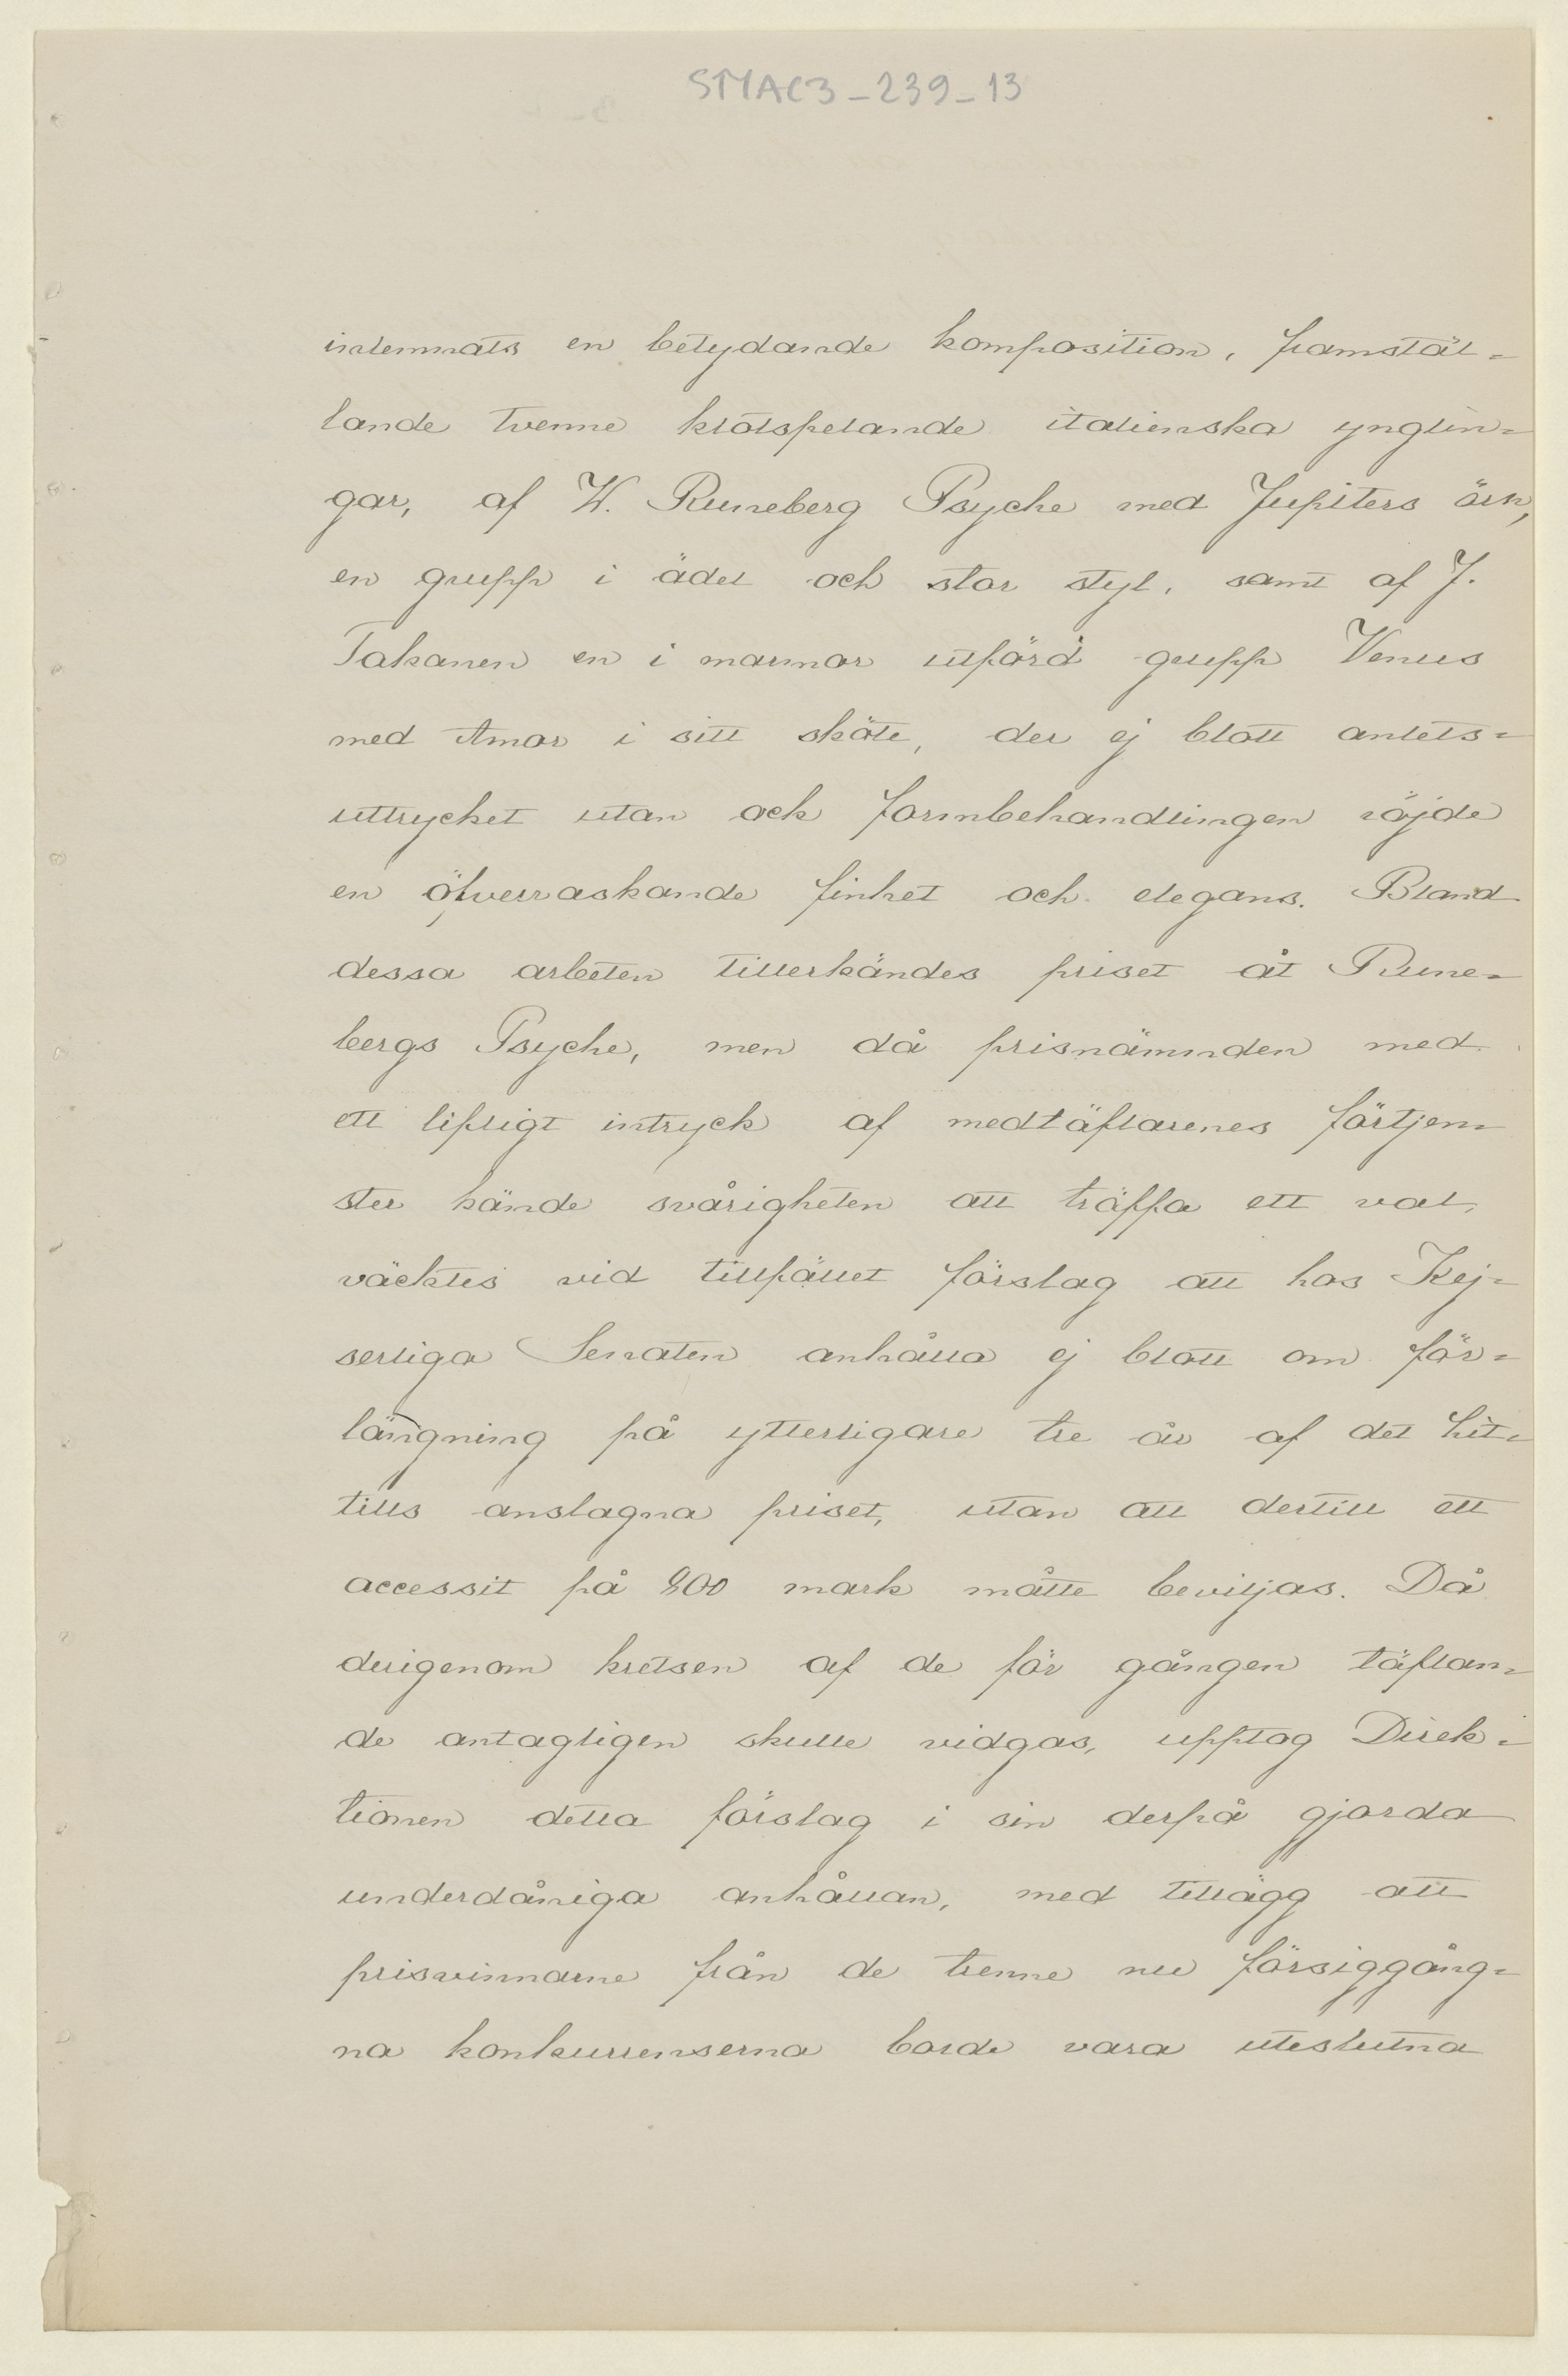 STYAC3_239_13
inlemnats en betydande komposition, framstäl=
lande tvenne klotspelande italienska ynglin=
gar, af W. Runeberg Psyche med Jupiters örn,
en grupp i ädel och stor styl, samt af J.
Takanen en i marmor utförd grupp Venus
med Amor i sitt sköte, der ej blott anlets=
uttrycket utan ock formbehandlingen röjde
en öfverraskande finhet och elegans. Bland
dessa arbeten tillerkändes priset åt Rune=
bergs Psyche, men då prisnämnden med
ett lifligt intryck af medtäflarenes förtjen=
ster kände svårigheten att träffa ett val,
väcktes vid tillfället förslag att hos Kej=
serliga Senaten anhålla ej blott om för=
längning på ytterligare tre år af det hit=
tills anslagna priset, utan att dertill ett
accessit på 800 mark måtte beviljas. Då
derigenom kretsen af de för gången täflan=
de antagligen skulle vidgas, upptog Direk=
tionen detta förslag i sin derpå gjorda
underdåniga anhållan, med tillägg att
prisvinnarne från de trenne nu försiggång=
na konkurrenserna borde vara uteslutna